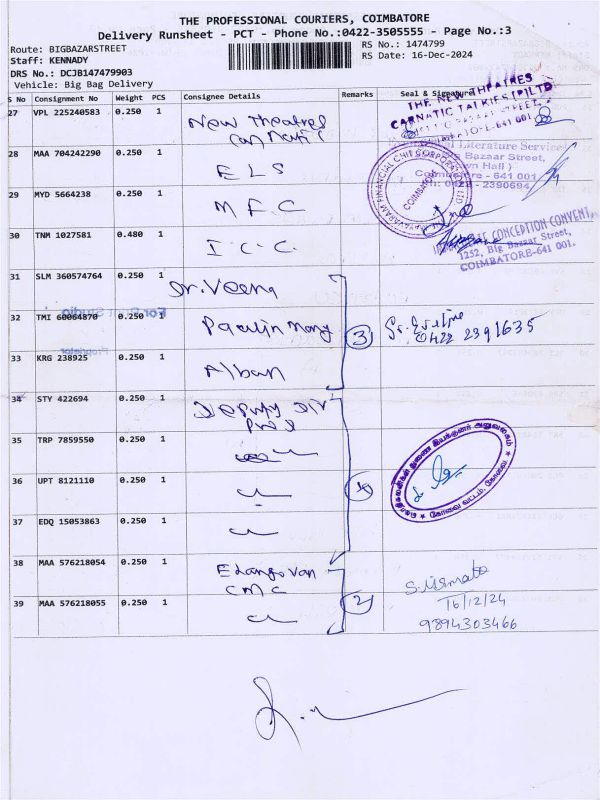 THE PROFESSIONAL COURIERS, COIMBATORE
Delivery Runsheet - PCT - Phone No.:0422-3505555 - Page No.:3
Route: BIGBAZARSTREET
RS No.: 1474799
Staff: KENNADY
RS Date: 16-Dec-2024
DRS No.: DCJB147479903
Vehicle: Big Bag Delivery
S No Consignment No Weight PCS Consignee Details Remarks Seal & Signature
27 VPL 225240583 0.250 1 New Theatres
THE NEW THEATRES
CARNATIC TALKIES (P) LTD
COIMBATORE-641 001
28 MAA 704242290 0.250 1 ELS
Literature Service
Bazaar Street,
Town Hall)
Coimbatore - 641 001
Ph: 0422 - 2390694
29 MYD 5664238 0.250 1 MFC
FINANCIAL CHIT CORPORATION
COIMBATORE
30 TNM 1027581 0.480 1 I.C.C.
CONCEPTION CONVENT,
1252, Big Bazaar Street,
COIMBATORE-641 001.
31 SLM 360574764 0.250 1 Dr. Veena
32 TMI 60064870 0.250 1 Paulin Mary 3
0422 2391635
33 KRG 238925 0.250 1 Alban
34 STY 422694 0.250 1 Deputy Dir
35 TRP 7859550 0.250 1
36 UPT 8121110 0.250 1 4
37 EDQ 15053863 0.250 1
38 MAA 576218054 0.250 1 Elangovan
CMC
39 MAA 576218055 0.250 1 2
16/12/24
9894303466